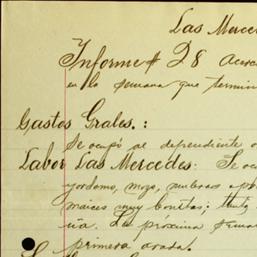 Las Merce
Informe # 28 Acerc
en la semana que termin
Gastos Grales.:
Se ocupó al dependiente
Labor Las Mercedes. Se oc
yordomo, mozo,
maices muy bonitos;
La próxima
primera arada.